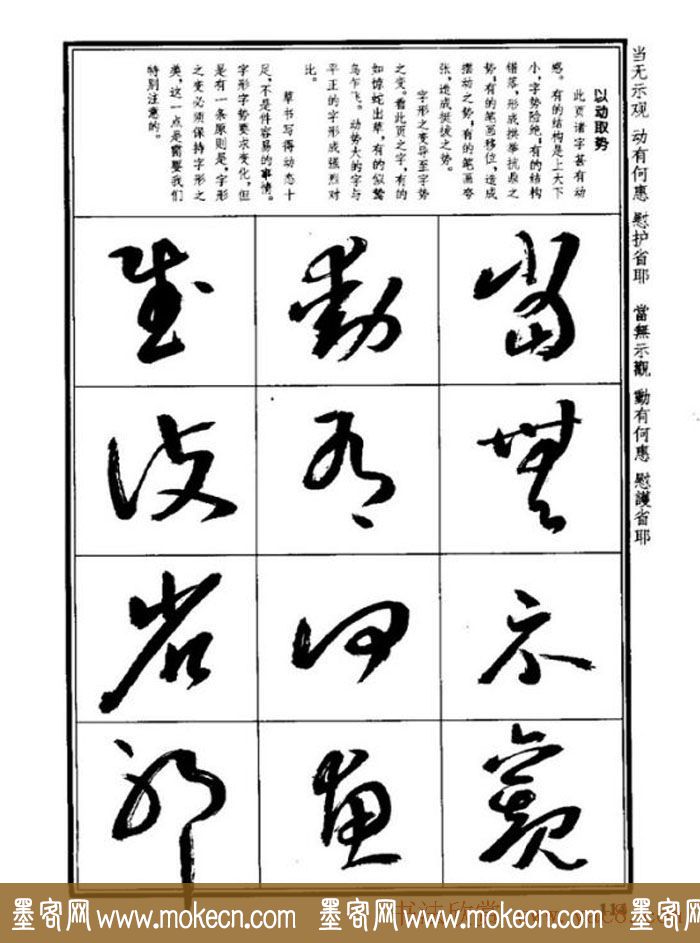 当无示观 动有何惠 慰护省耶 當無示觀 動有何惠 慰護省耶
以动取势
此页诸字甚有动
感。有的结构是上大下
小,字势险绝;有的结构
错落,形成拱举抗鼎之
势;有的笔画移位,造成
摆动之势;有的笔画夸
张,造成挺拔之势。
字形之变导至字势
之变。看此页之字,有的
如惊蛇出草,有的似鸷
鸟乍飞。动势大的字与
平正的字形成强烈对
比。
草书写得动态十
足,不是件容易的事情。
字形字势要求变化,但
是有一条原则是,字形
之变必须保持字形之
美,这一点是需要我们
特别注意的。
當無示觀
動有何惠
慰護省耶
114
墨客网 www.mokecn.com 墨客网 www.mokecn.com
书法欣赏